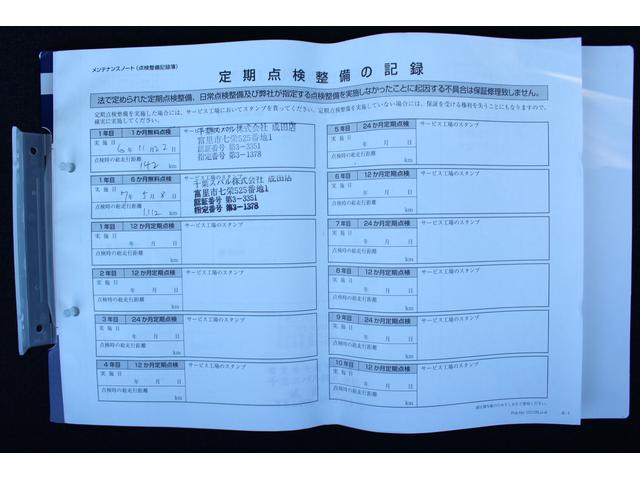 メンテナンスノート（点検整備記録簿）
定期点検整備の記録
法で定められた定期点検整備、日常点検整備及び弊社が指定する点検整備を実施しなかったことに起因する不具合は保証修理致しません。
定期点検整備を実施した場合には、サービス工場においてスタンプを貰ってください。定期点検整備を実施していない場合には、保証を受ける権利を失うことにもなりますので、
確実に実施してください。
1年目 1か月無料点検 サービス工場のスタンプ
実施日
6年11月22日
点検時の総走行距離
142 km
千葉スバル株式会社 成田店
富里市七栄525番地1
認証番号 第3-3351
指定番号 第3-1378
1年目 6か月無料点検 サービス工場のスタンプ
実施日
7年5月8日
点検時の総走行距離
km
千葉スバル株式会社 成田店
富里市七栄525番地1
認証番号 第3-3351
指定番号 第3-1378
1年目 12か月定期点検 サービス工場のスタンプ
実施日
年 月 日
点検時の総走行距離
km
2年目 12か月定期点検 サービス工場のスタンプ
実施日
年 月 日
点検時の総走行距離
km
3年目 24か月定期点検 サービス工場のスタンプ
実施日
年 月 日
点検時の総走行距離
km
4年目 12か月定期点検 サービス工場のスタンプ
実施日
年 月 日
点検時の総走行距離
km
5年目 24か月定期点検 サービス工場のスタンプ
実施日
年 月 日
点検時の総走行距離
km
6年目 12か月定期点検 サービス工場のスタンプ
実施日
年 月 日
点検時の総走行距離
km
7年目 24か月定期点検 サービス工場のスタンプ
実施日
年 月 日
点検時の総走行距離
km
8年目 12か月定期点検 サービス工場のスタンプ
実施日
年 月 日
点検時の総走行距離
km
9年目 24か月定期点検 サービス工場のスタンプ
実施日
年 月 日
点検時の総走行距離
km
10年目 12か月定期点検 サービス工場のスタンプ
実施日
年 月 日
点検時の総走行距離
km